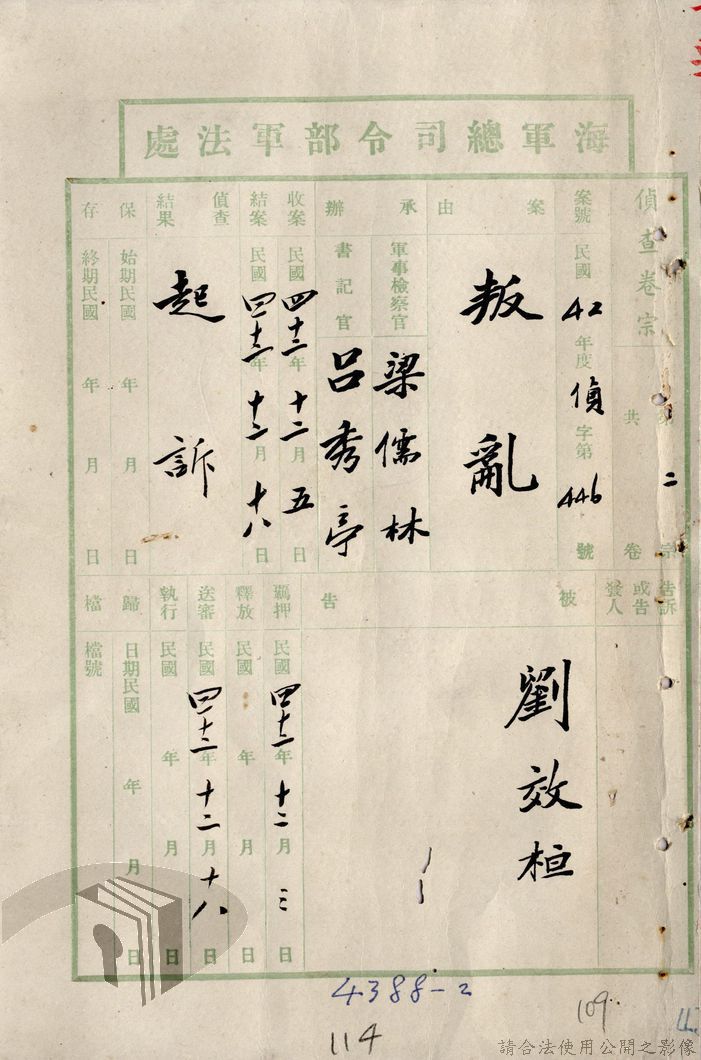 海軍總司令部軍法處
偵查卷宗
共 卷
第二宗
案號 民國42年度偵字第446號
案由
叛亂
承辦
軍事檢察官 梁儒林
書記官 呂秀亭
收案 民國四十二年十二月五日
結案 民國四十二年十二月十八日
偵查結果
起訴
保存
始期民國 年 月 日
終期民國 年 月 日
告訴或告發人
被告
劉效桓
羈押 民國四十二年十二月三日
釋放 民國 年 月 日
送審 民國四十二年十二月十八日
執行 民國 年 月 日
歸檔
日期民國 年 月 日
檔號
4388-2
114
109
請合法使用公開之影像